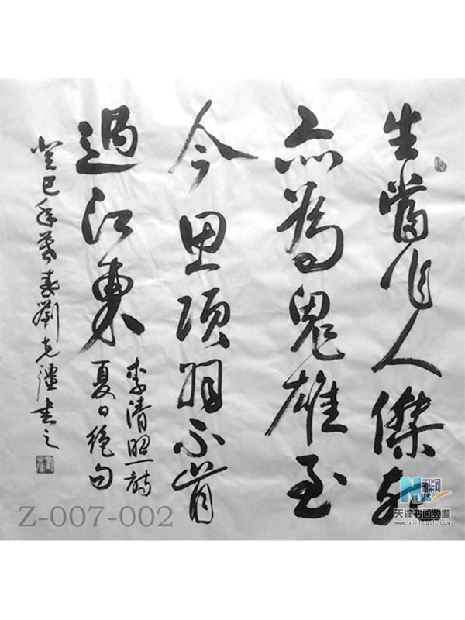 生當作人傑死
亦為鬼雄至
今思項羽不肯
過江東
李清照詩
夏日絕句
癸巳年暮春劉克書之
Z-007-002
天津书画频道